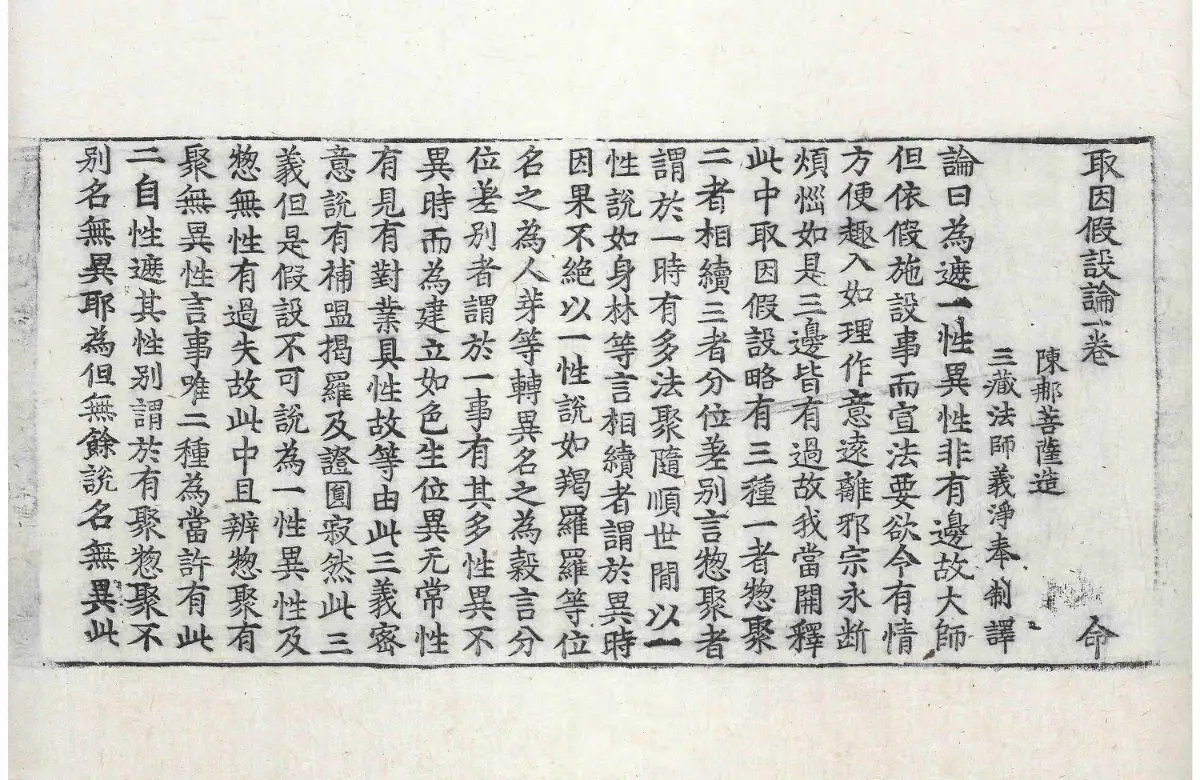 取因假設論一卷 命
陳那菩薩造
三藏法師義淨奉制譯
論曰為遮一性異性非有邊故大師
但依假施設事而宣法要欲令有情
方便趣入如理作意遠離邪宗永斷
煩惱如是三邊皆有過故我當開釋
此中取因假設略有三種一者惣聚
二者相續三者分位差別言惣聚者
謂於一時有多法聚隨順世間以一
性說如身林等言相續者謂於異時
因果不絕以一性說如羯羅羅等位
名之為人芽等轉異名之為穀言分
位差別者謂於一事有其多性異不
異時而為建立如色生位異无常性
有見有對業具性故等由此三義密
意說有補㗌揭羅及證圎寂然此三
義但是假設不可說為一性異性及
惣無性有過失故此中且辨惣聚有
聚無異性言事唯二種為當許有此
二自性遮其性別謂於有聚惣聚不
別名無異耶為但無餘說名無異此